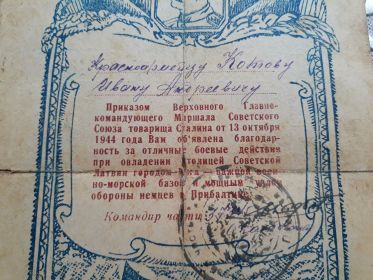 Красноармейцу Котову
Ивану Андреевичу
Приказом Верховного Главно-
командующего Маршала Советского
Союза товарища Сталина от 13 октября
1944 года Вам об'явлена благодар-
ность за отличные боевые действия
при овладении столицей Советской
Латвии городом — важной воен-
но-морской базой и мощным узлом
обороны немцев в Прибалтике.
Командир части